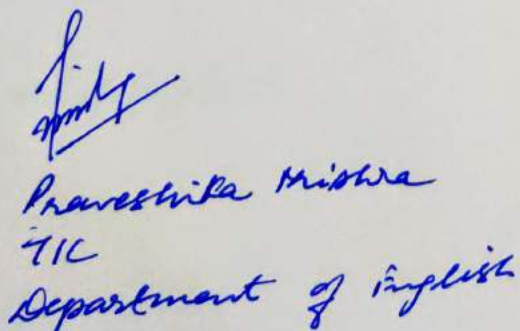 Praveshika Mishra
TIC
Department of English